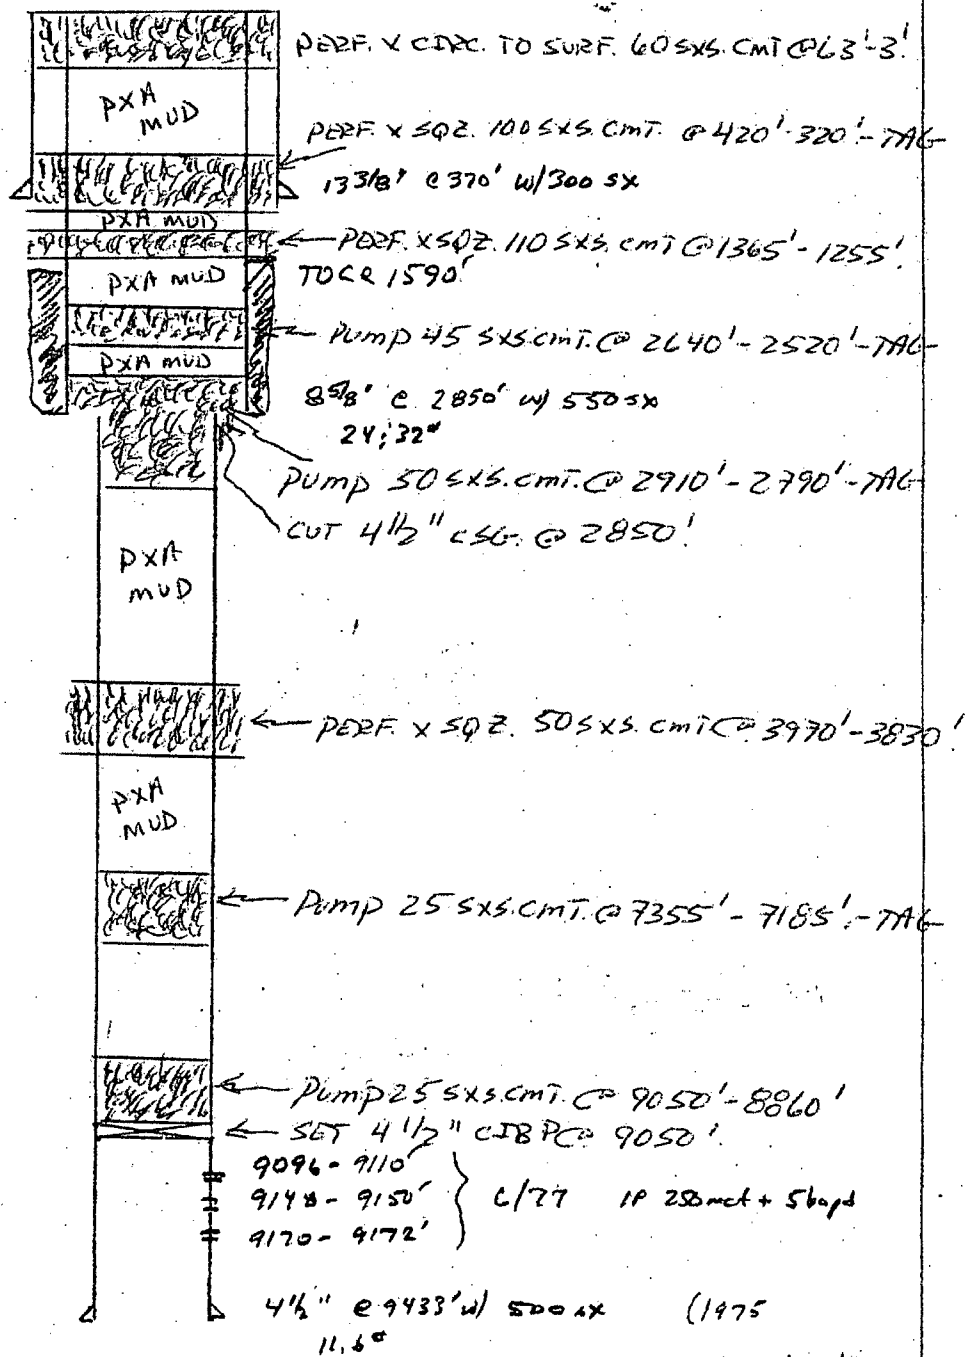 PERF. X CIRC. TO SURF. 60 SXS. CMT @ 63'-3'.
PXA
MUD
PERF. X SQZ. 100 SXS. CMT. @ 420'-320'-TAG
13 3/8" @ 370' w/300 sx
PXA MUD
PERF. X SQZ. 110 SXS. CMT @ 1365'-1255'.
PXA MUD
TOC @ 1590'
PUMP 45 SXS. CMT. @ 2640'-2520'-TAG
PXA MUD
8 5/8" @ 2850' w/ 550 sx
24; 32#
PUMP 50 SXS. CMT. @ 2910'-2790'-TAG
CUT 4 1/2" CSG. @ 2850'.
PXA
MUD
PERF. X SQZ. 50 SXS. CMT @ 3970'-3830'.
PXA
MUD
PUMP 25 SXS. CMT. @ 7355'-7185'.-TAG
PUMP 25 SXS. CMT. @ 9050'-8860'
SET 4 1/2" CIBP @ 9050'.
9096-9110'
9148-9150' 6/77 IP 250 mcf + 5 bopd
9170-9172'
4 1/2" @ 9433' w/ 500 sx (1975
11.6#